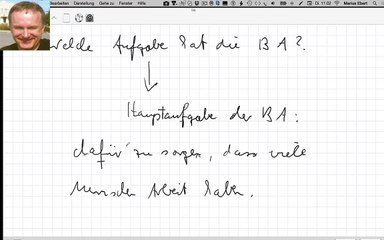 Bearbeiten Darstellung Gehe zu Fenster Hilfe Di. 11:02 Marius Ebert
welche Aufgabe hat die BA?
Hauptaufgabe der BA:
dafür zu sorgen, dass viele
Menschen Arbeit haben.